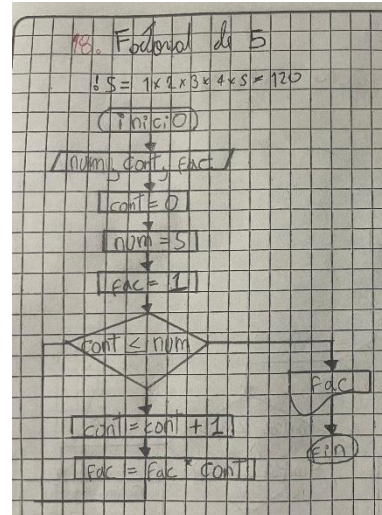 18. Factorial de 5
!5= 1x2x3x4x5=120
inicio
num, cont, fact
cont=0
num=5
fac=1
cont ≤ num
fac
cont=cont+1
fin
fac=fac*cont